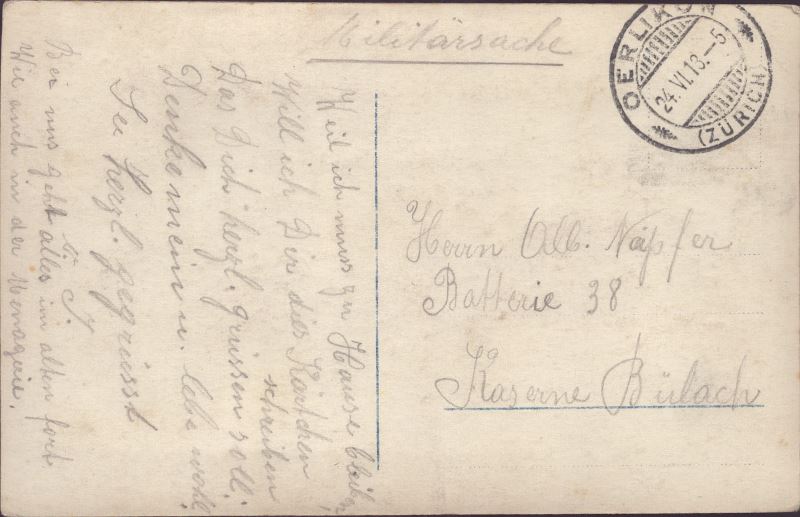 Militärsache
OERLIKON
24.VI.13.-5
(ZÜRICH)
Herrn Alb. Näpfer
Batterie 38
Kaserne Bülach
Weil ich muss zu Hause bleiben,
Will ich Dir dies Kärtchen
schreiben
Das Dich herzl. grüssen soll;
Denke mein u. lebe wohl.
Sei herzl. gegrüsst
Bei uns geht alles im alten fort
Wie auch in der